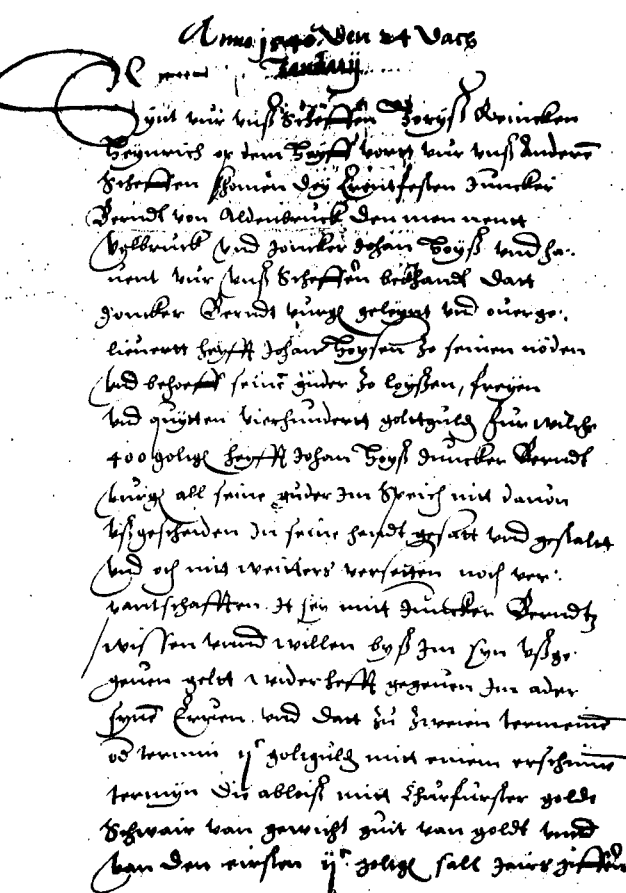 Anno 1540 den 24 Dach
Januarij
Synt vur unß Scheffen Goryß Reincken
Heynrich op dem Hoyff vortt vur unß Anderen
Scheffen khomen dey Erentfesten Juncker
Berndt von Aldenbruck den men nentt
Velbruck und Joncker Johan Hoyß und ha-
uent vur unß Scheffen bekhandt datt
Joncker Berndt vurg gelegnt und overge-
lieuertt heyfft Johan Hoysen zo seinen nöden
und behoeff seine güder zo loyßen, freyen
und quytten vierhundertt goltgulden fur wilche
400 goltg heyfft Johan Hoyß Juncker Berndt
vurg all seine guder Im Speich nitt davon
ußgescheiden In seine handt gesatt und gestaltt
und och nitt weitters versetten noch ver-
pantschafften It sey mitt Juncker Berndtz
wissen unnd willen byß Im syn ußge-
geven geltt widerhefft gegeven Im ader
syne Erven und datt zu zweien termeine
od termin ij^c goltguld mitt einem erschinne
termyn die abloiß mitt Churfurster goldt
Schwair van gewicht guit van goldt unnd
van den eirsten ij^c goltg sall